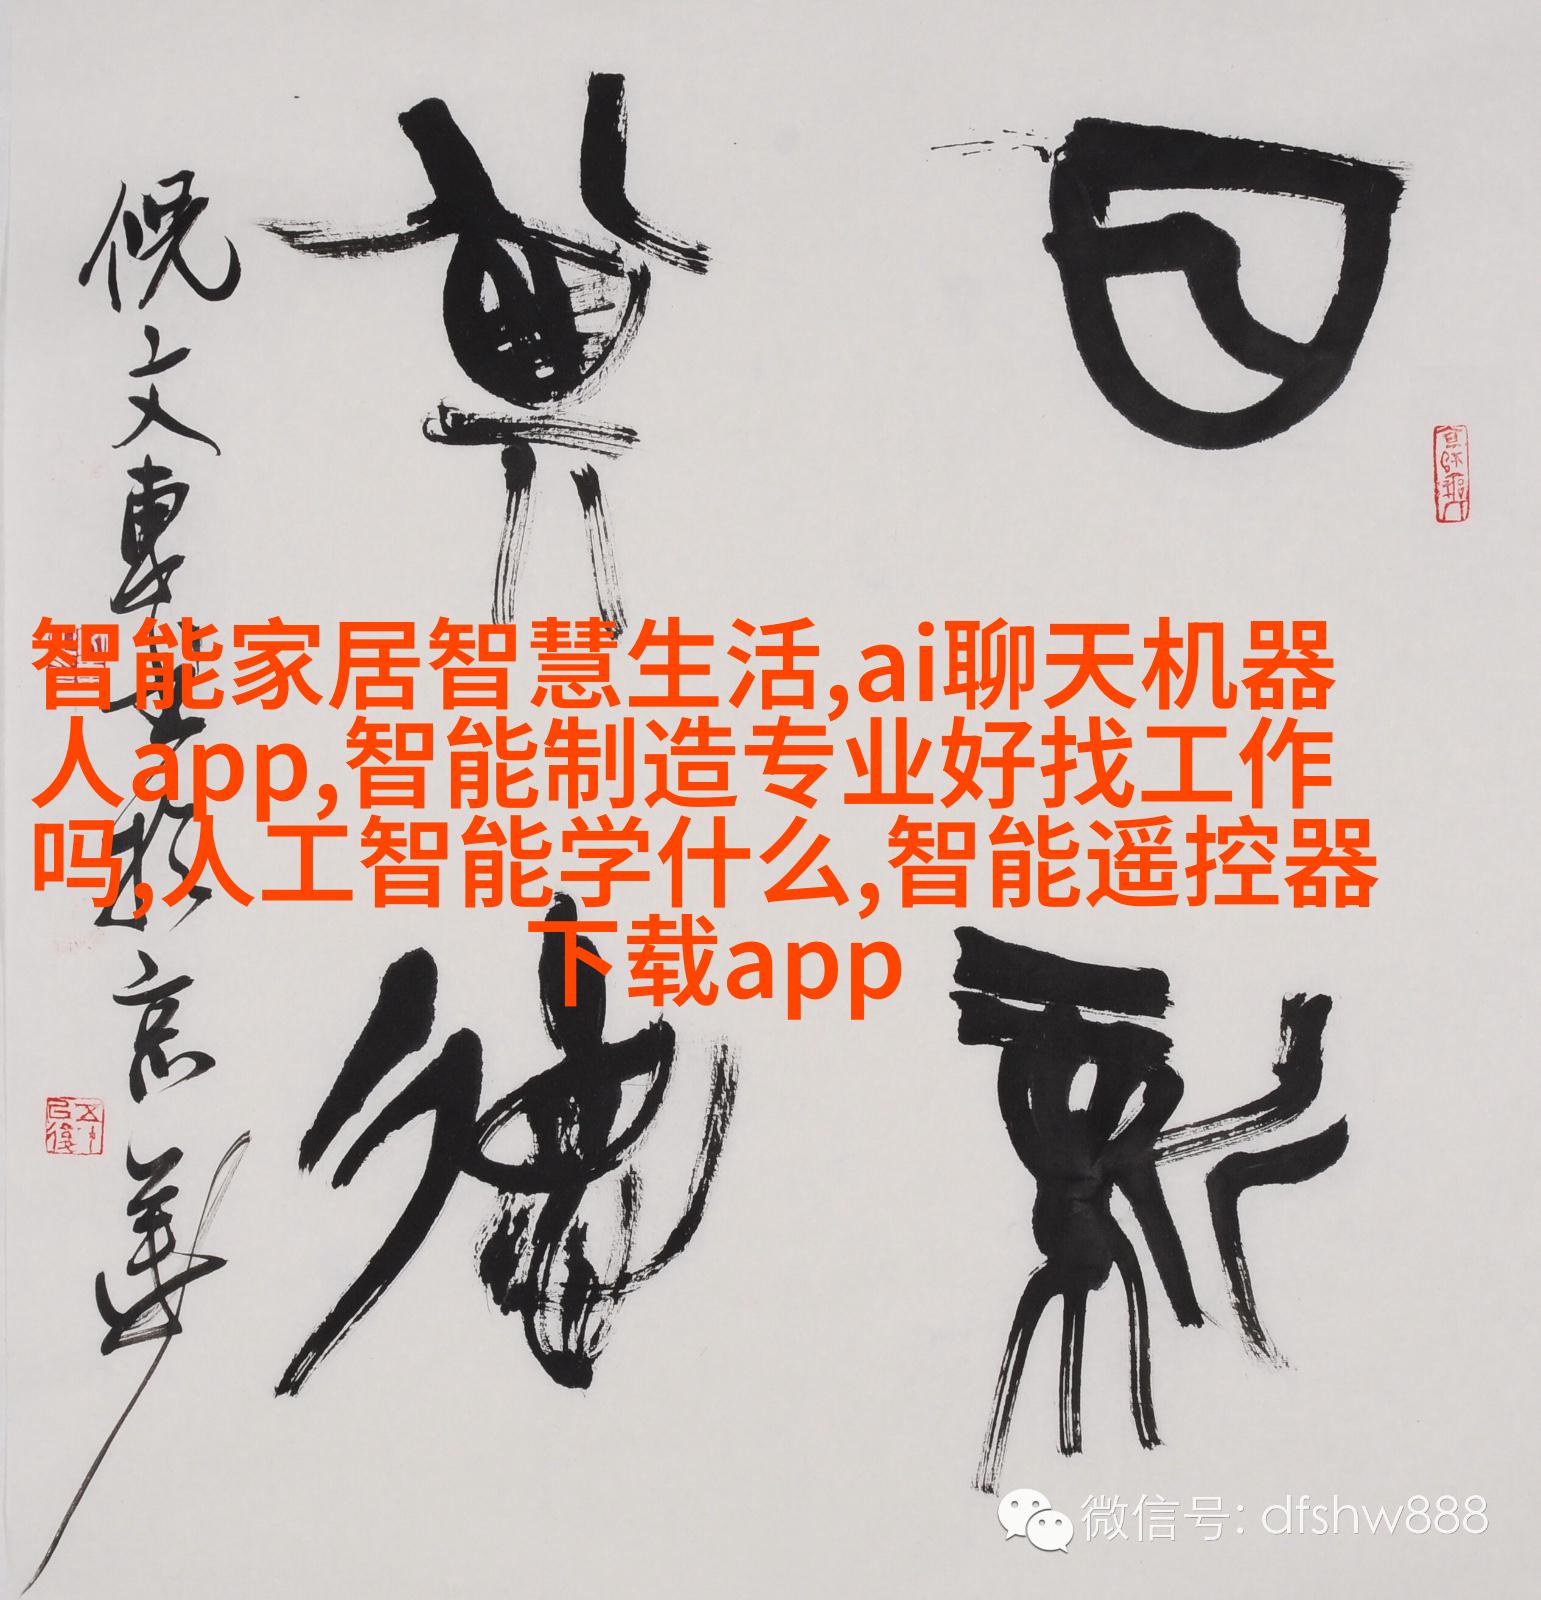 日新
其德
倪文東书於京華
智能家居智慧生活,ai聊天机器
人app,智能制造专业好找工作
吗,人工智能学什么,智能遥控器
下载app
微信号: dfshw888